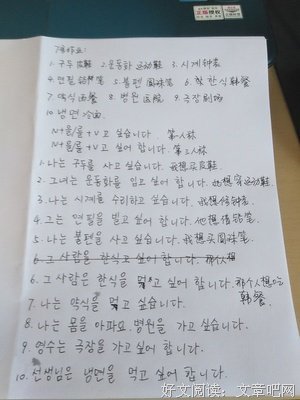 7课作业:
1. 구두 皮鞋 2. 운동화 运动鞋 3. 시계 钟表
4. 연필 铅笔 5. 볼펜 圆珠笔 6. 한식 韩餐
7. 약식 西餐 8. 병원 医院 9. 극장 剧场
10. 냉면 冷面
N+을/를 +V고 싶습니다. 第一人称
N+을/를 +V고 싶어 합니다. 第三人称
1. 나는 구두를 사고 싶습니다. 我想买皮鞋
2. 그녀는 운동화를 입고 싶어 합니다. 她想穿运动鞋
3. 나는 시계를 수리하고 싶습니다. 我想修钟表
4. 그는 연필을 빌고 싶어 합니다. 他想借铅笔
5. 나는 볼펜을 사고 싶습니다. 我想买圆珠笔
6. 그 사람은 한식을 먹고 싶어 합니다. 那个人想吃韩餐
7. 나는 약식을 먹고 싶습니다.
8. 나는 몸을 아파요. 병원을 가고 싶습니다.
9. 영수는 극장을 가고 싶어 합니다.
10. 선생님은 냉면을 먹고 싶어 합니다.
好文阅读:文章吧网